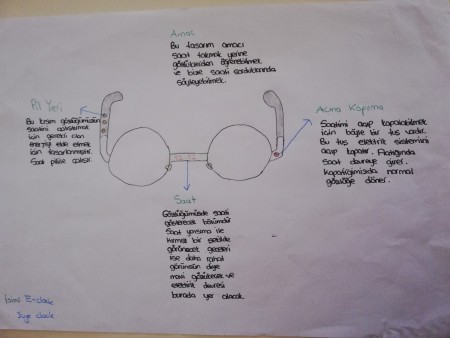 Amaç
Bu tasarım amacı
saat takmak yerine
gözlükten öğrenebilmek
ve bize saati sorduklarında
söyleyebilmek.
Pil Yeri
Bu kısım gözlüğümüzün
saatini çalıştırmak
için gerekli olan
enerjiyi elde etmek
için tasarlanmıştır.
Saat pille çalışır.
Açma Kapama
Saatimi açıp kapatabilmek
için böyle bir tuş vardır.
Bu tuş elektrik sistemini
açıp kapatır. Açtığında
saat devreye girer.
kapattığımızda normal
gözlüğe döner.
Saat
Gözlüğümüzde saati
gösterecek bölümdür
Saat yansıma ile
kırmızı bir şekilde
görünecek geceleri
ise daha rahat
görünsün diye
mavi gözükecek ve
elektrik devresi
burada yer alacak.
İsmi E-clock
Eye clock